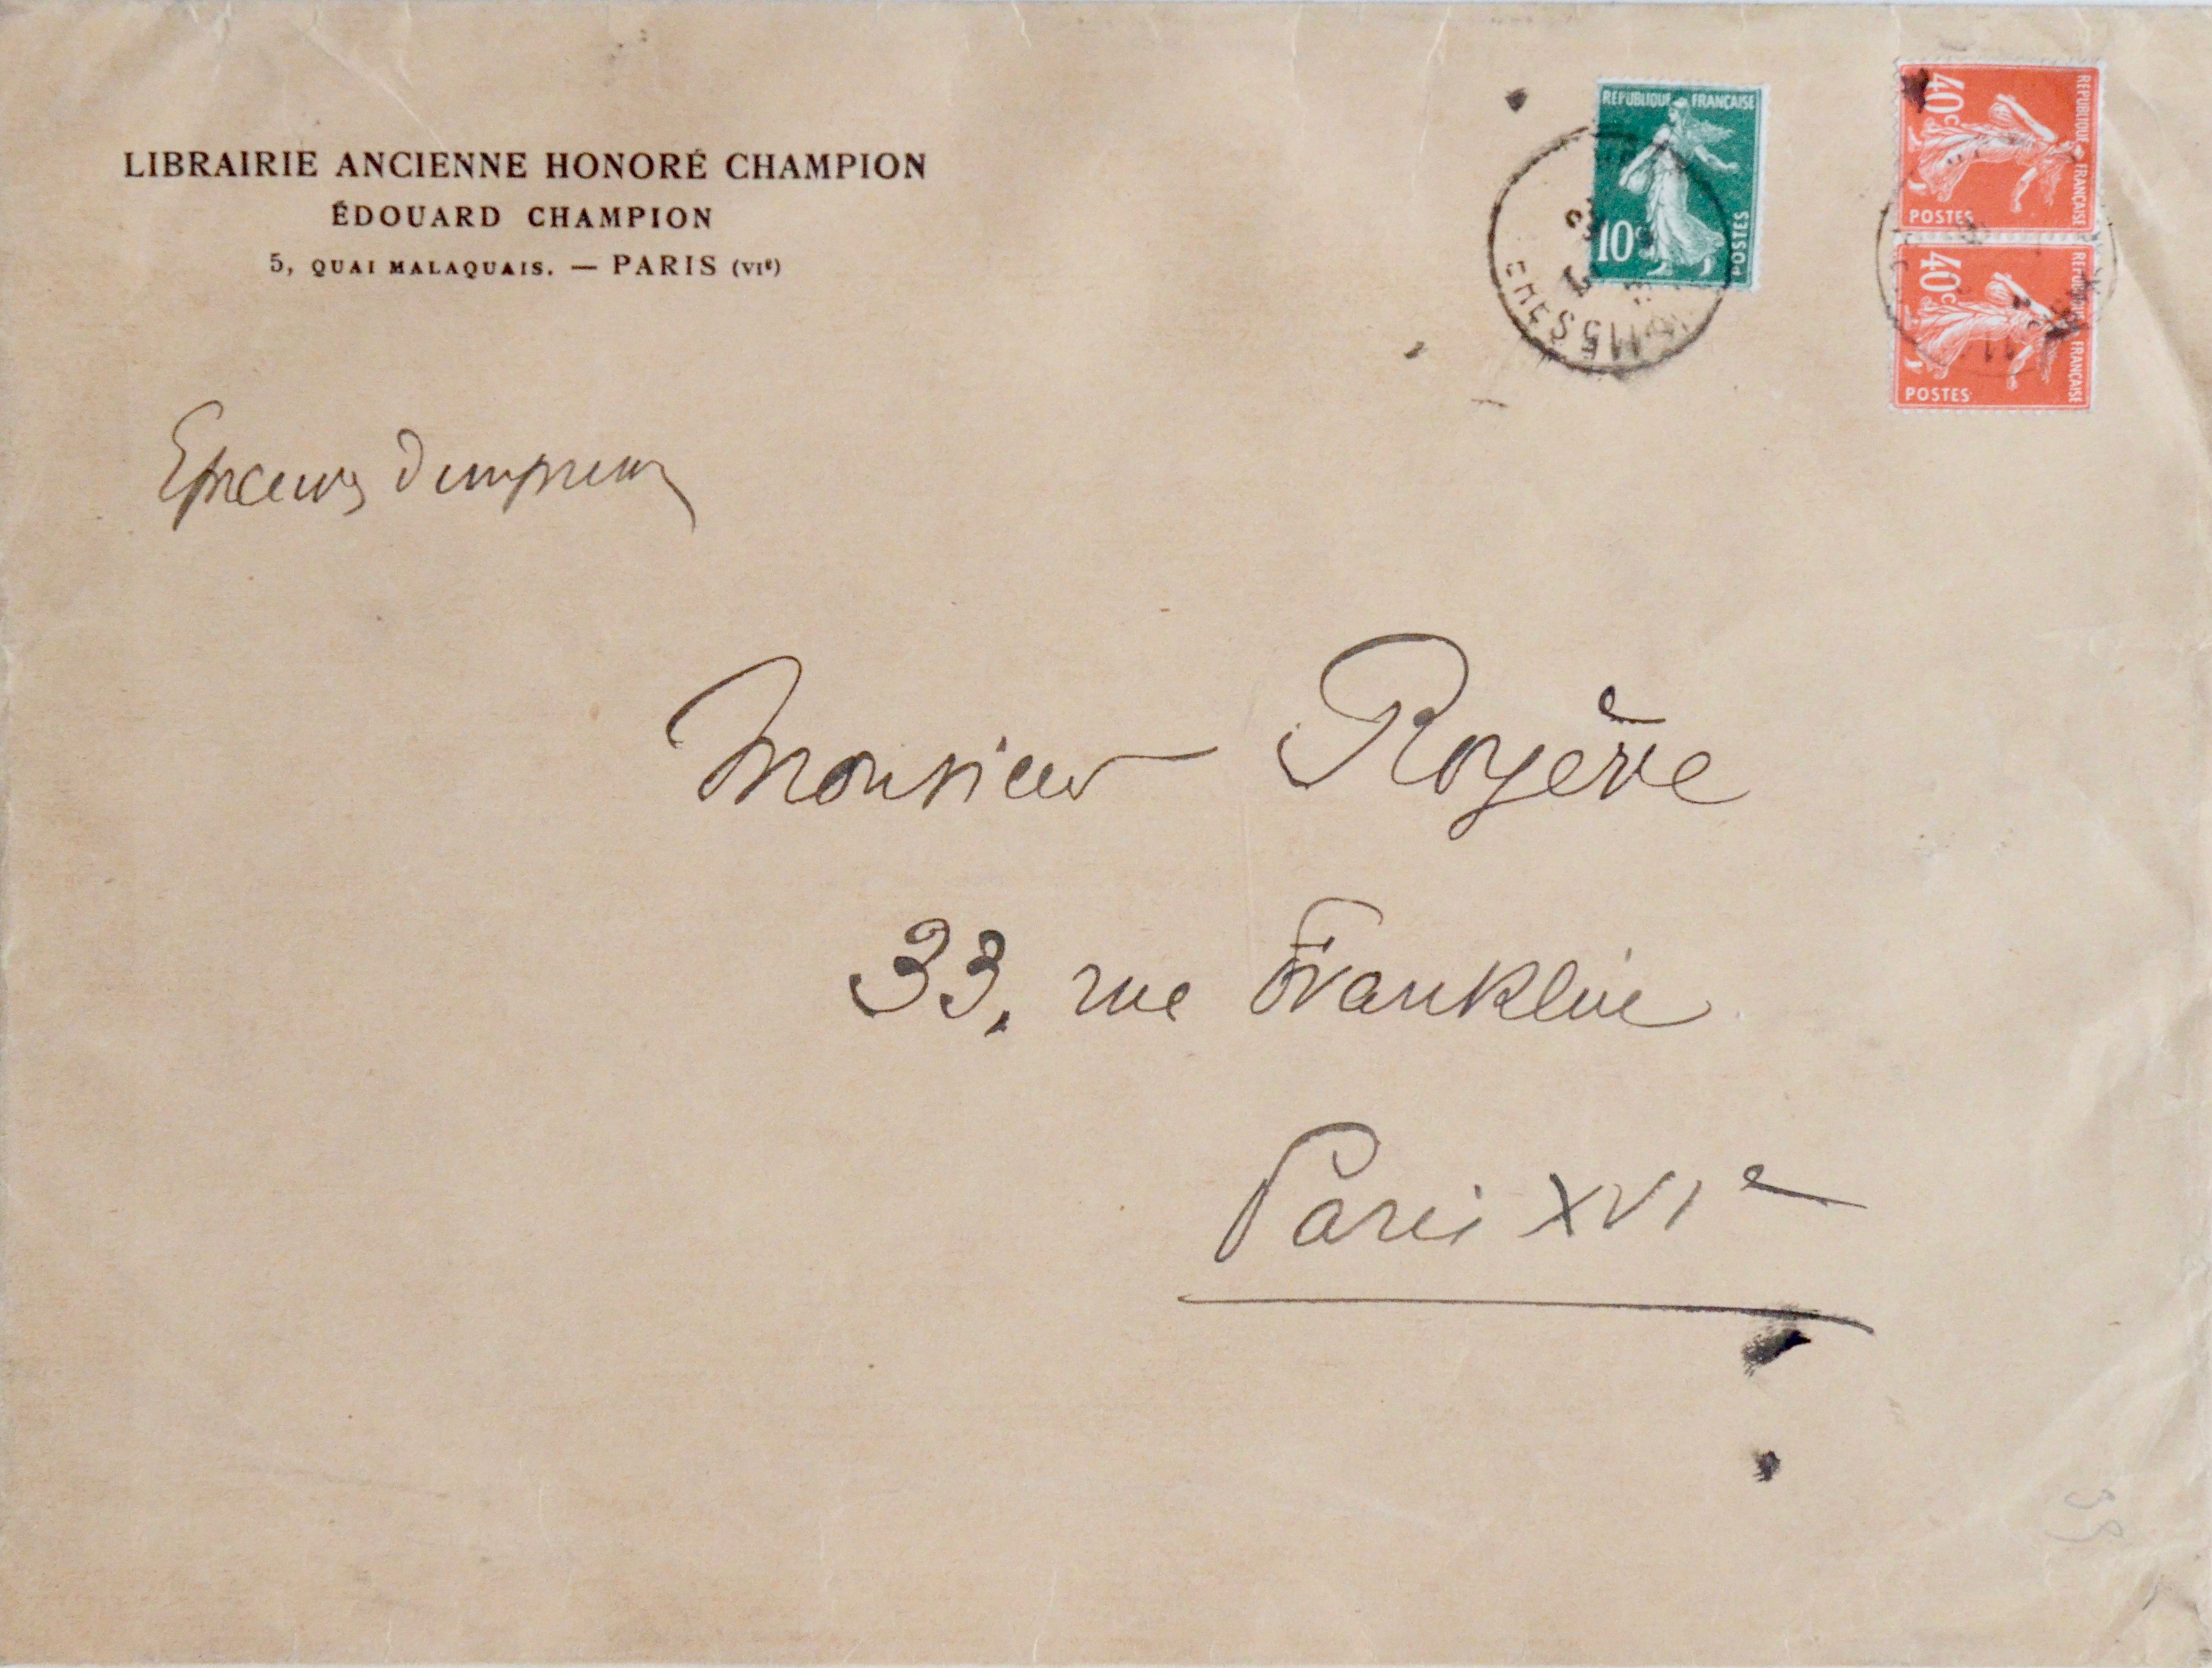 LIBRAIRIE ANCIENNE HONORÉ CHAMPION
ÉDOUARD CHAMPION
5, QUAI MALAQUAIS. — PARIS (VIe)
REPUBLIQUE FRANÇAISE
10c
POSTES
40c
REPUBLIQUE FRANÇAISE
POSTES
40c
REPUBLIQUE FRANÇAISE
POSTES
Epreuves d'imprimerie
Monsieur Royère
33, rue Franklin
Paris XVIe